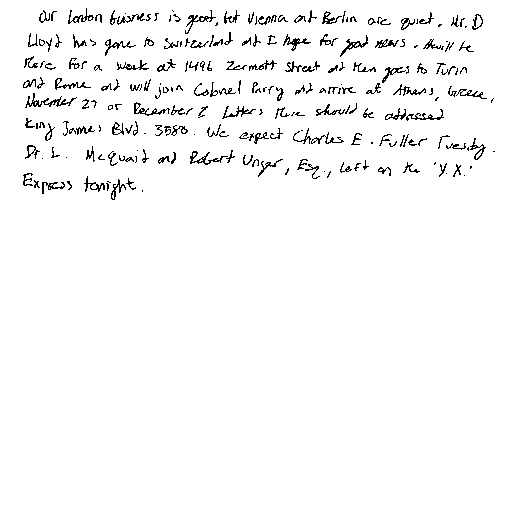 Our London business is good, but Vienna and Berlin are quiet. Mr. D
Lloyd has gone to Switzerland and I hope for good news. He will be
there for a week at 1496 Zermott Street and then goes to Turin
and Rome and will join Colonel Parry and arrive at Athens, Greece,
November 27 or December 2. Letters there should be addressed
King James Blvd. 3580. We expect Charles E. Fuller Tuesday.
Dr. L. McQuaid and Robert Unger, Esq., left on the 'Y.X.'
Express tonight.